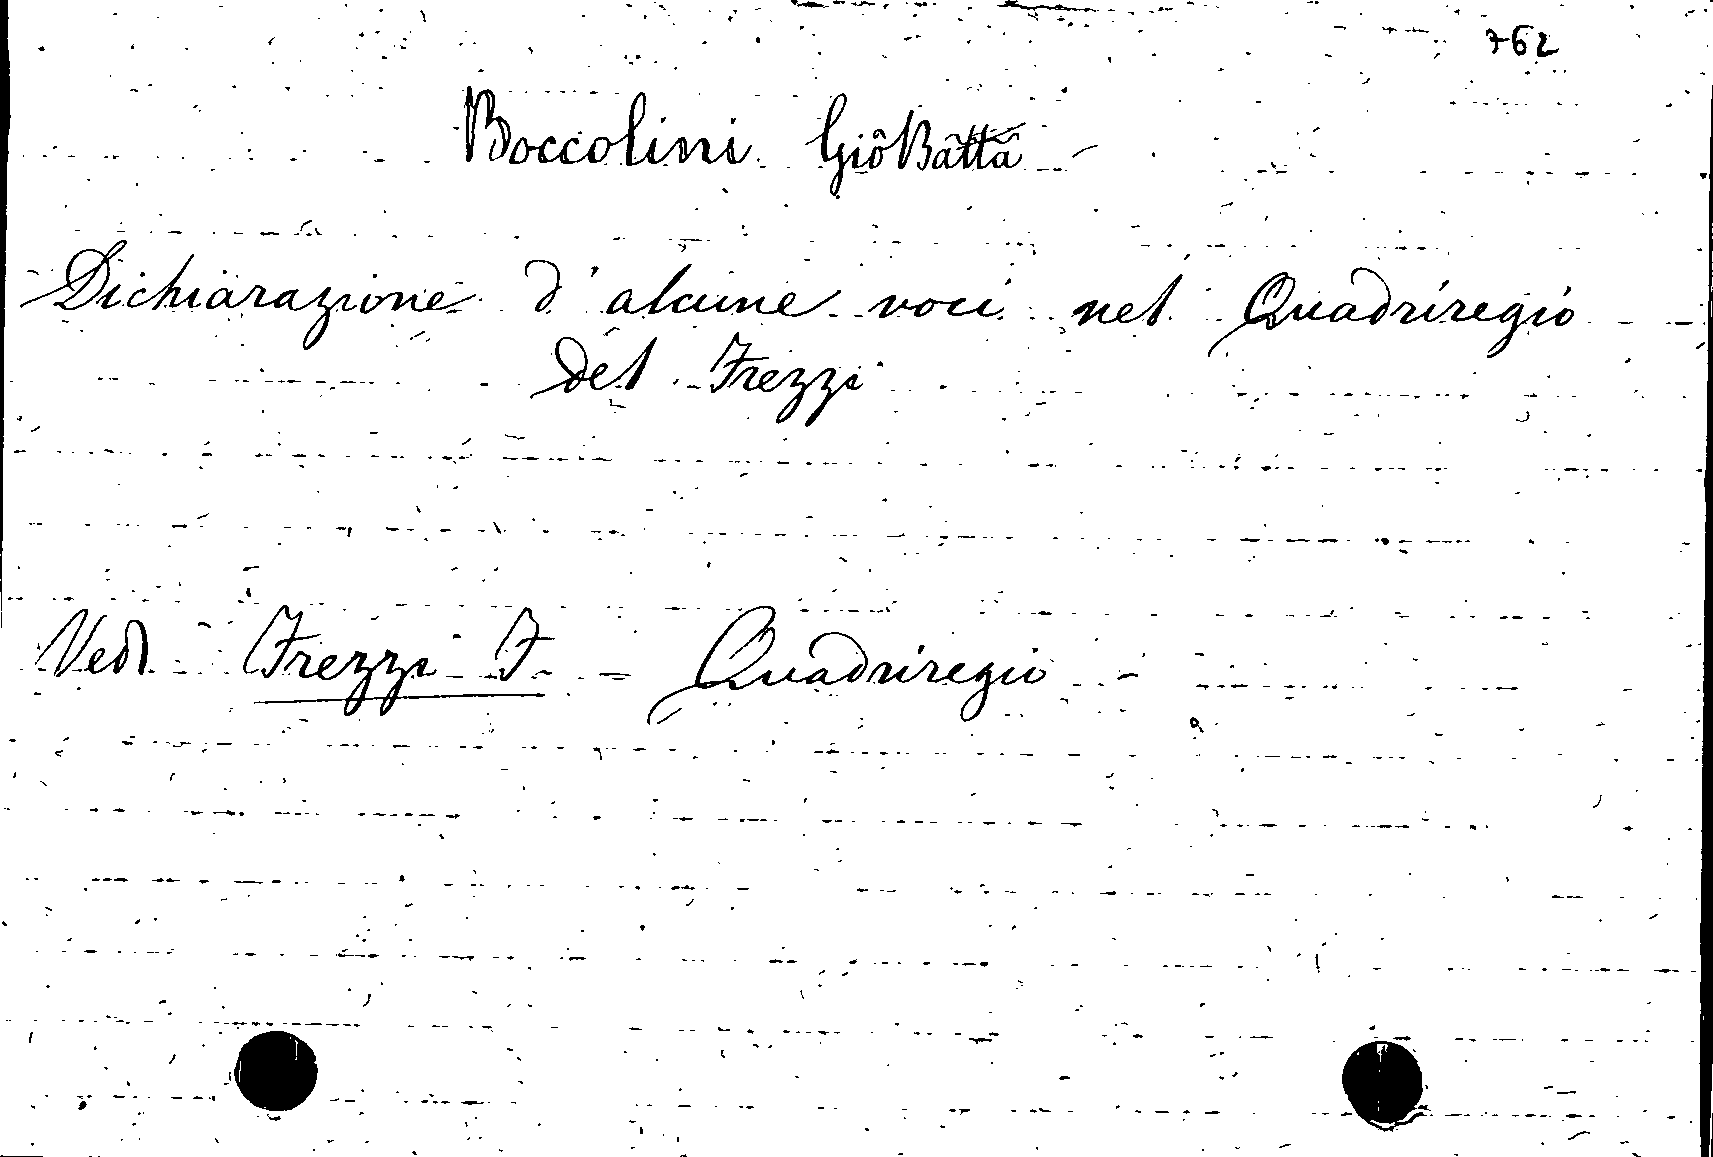 762
Boccolini Giô Bâttâ
Dichiarazione d'alcune voci nel Quadriregio
del Frezzi
Vedi Frezzi F. = Quadriregio